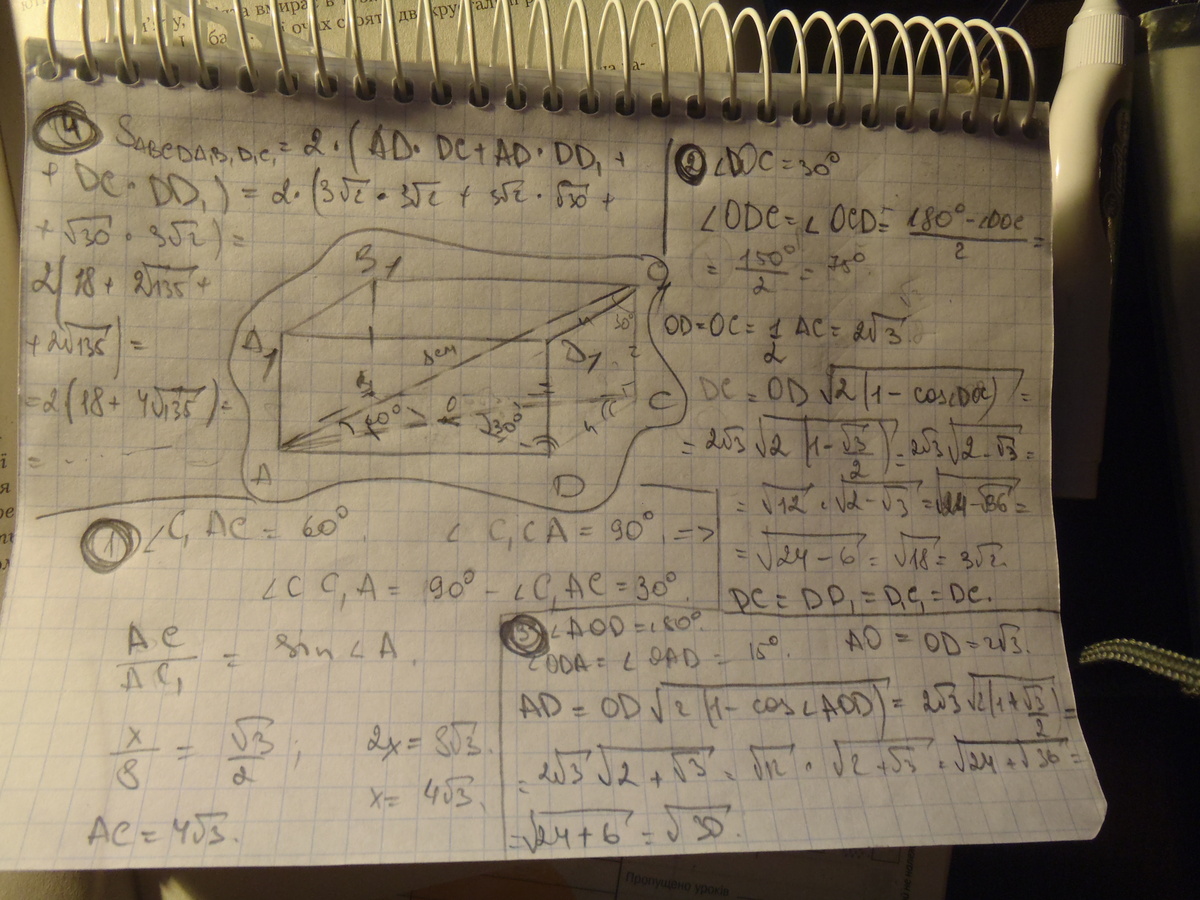 ④ S ABCDA₁B₁D₁C₁ = 2·(AD·DC+AD·DD₁ +
+ DC·DD₁) = 2·(3√2·3√2 + 3√2·√30 +
+ √30·3√2) =
2(18 + 2√135 +
+2√135) =
=2(18+ 4√135)=
= . . . . .
B₁
C₁
A₁
D₁
8см
30°
60°
O
√30°
C
A
D
② ∠DOC = 30°
∠ODC = ∠OCD = 180° - ∠DOC / 2 =
= 150° / 2 = 75°
OD=OC = 1/2 AC = 2√3.
DC = OD √2(1 - cos∠DOC) =
= 2√3 √2(1-√3/2) = 2√3 √2-√3 =
= √12 · √2-√3 = √24-√36 =
= √24-6 = √18 = 3√2.
DC = DD₁ = D₁C₁ = DC.
① ∠C₁AC = 60°. ∠C₁CA = 90°. =>
∠CC₁A = 90° - ∠C₁AC = 30°.
AC / AC₁ = sin∠A.
x/8 = √3/2 ; 2x = 8√3.
x = 4√3.
AC = 4√3.
③ ∠AOD = 180°.
∠ODA = ∠OAD = 15°. AO = OD = 2√3.
AD = OD √2(1-cos∠AOD) = 2√3 √2(1+√3/2) =
= 2√3 √2+√3 = √12 · √2+√3 = √24+√36 =
= √24+6 = √30.
Пропущено уроків